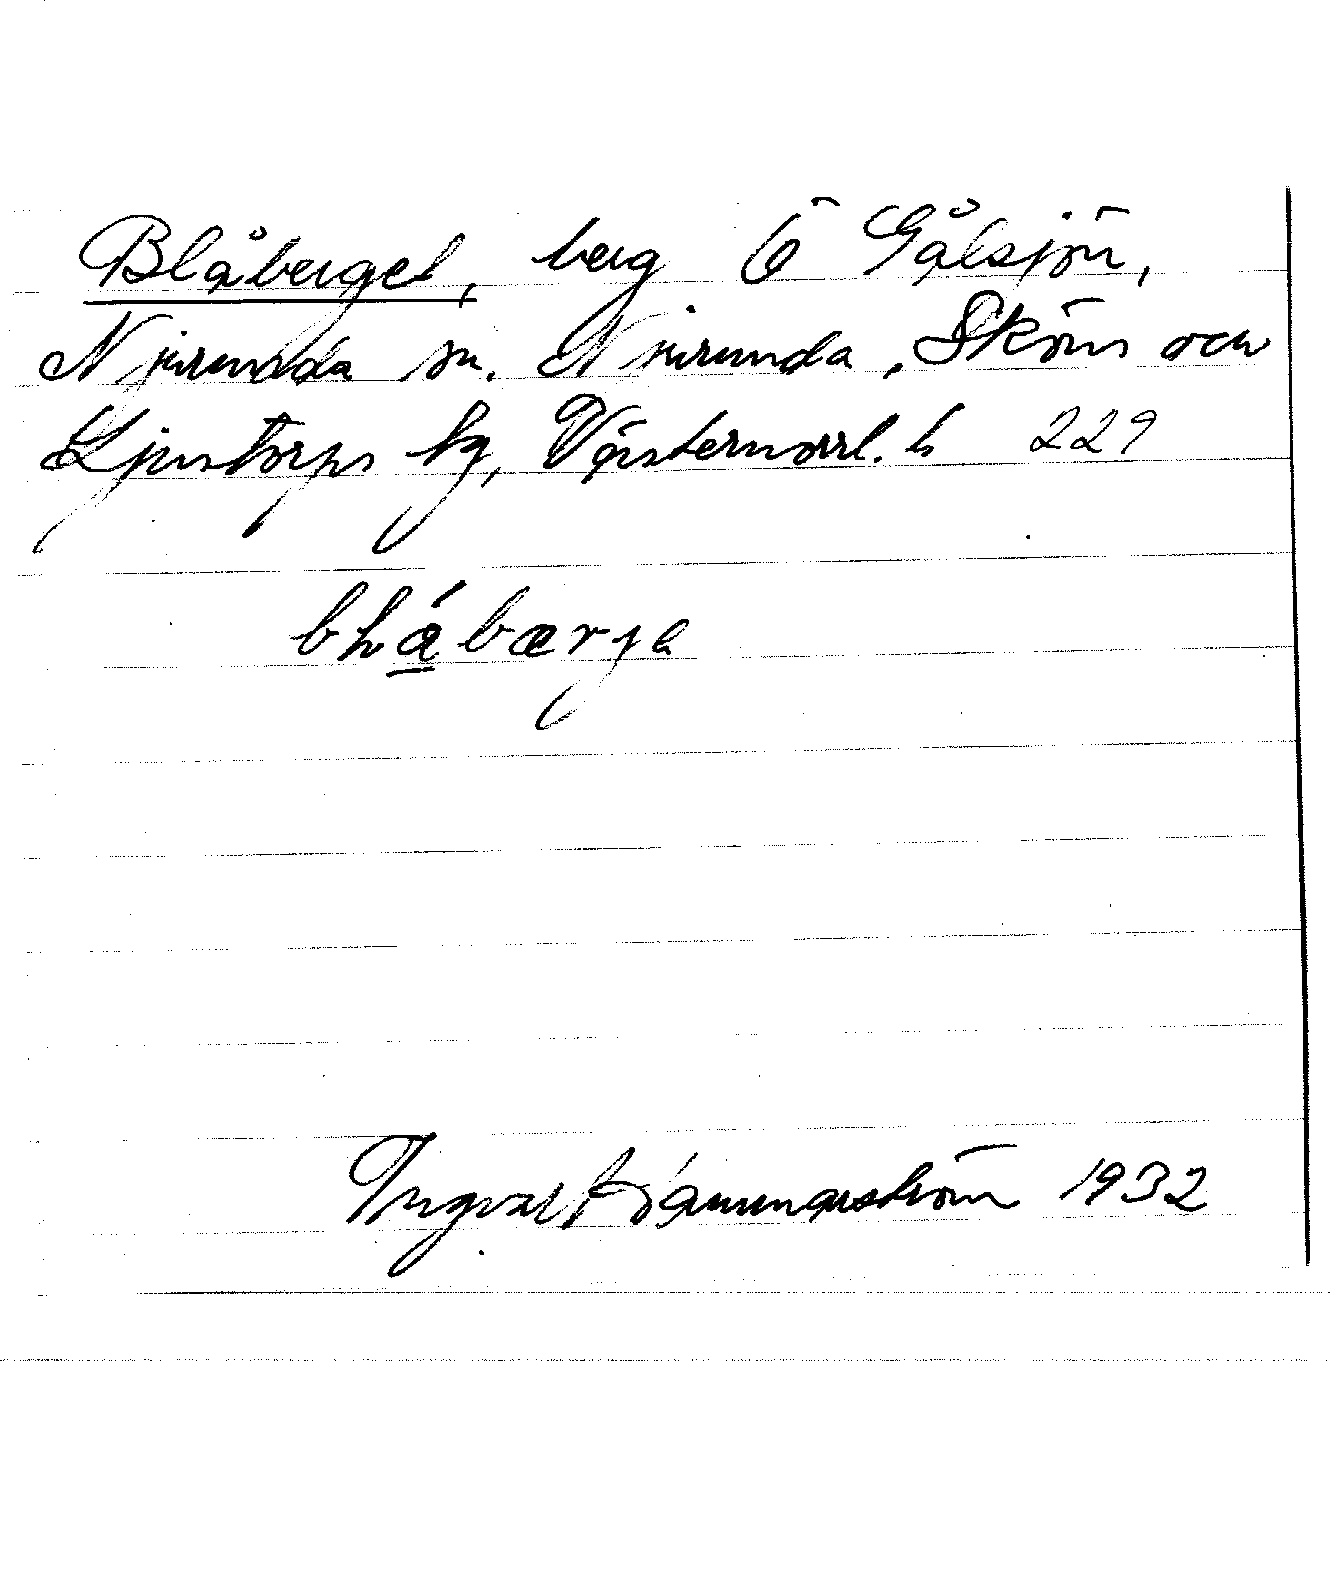 Blåberget, berg Ö Gålsjön,
Njurunda sn. Njurunda, Sköns och
Ljustorps tg, Västernorrl. l. 229
bɫábærjɐ
Ingvar Hammarström 1932